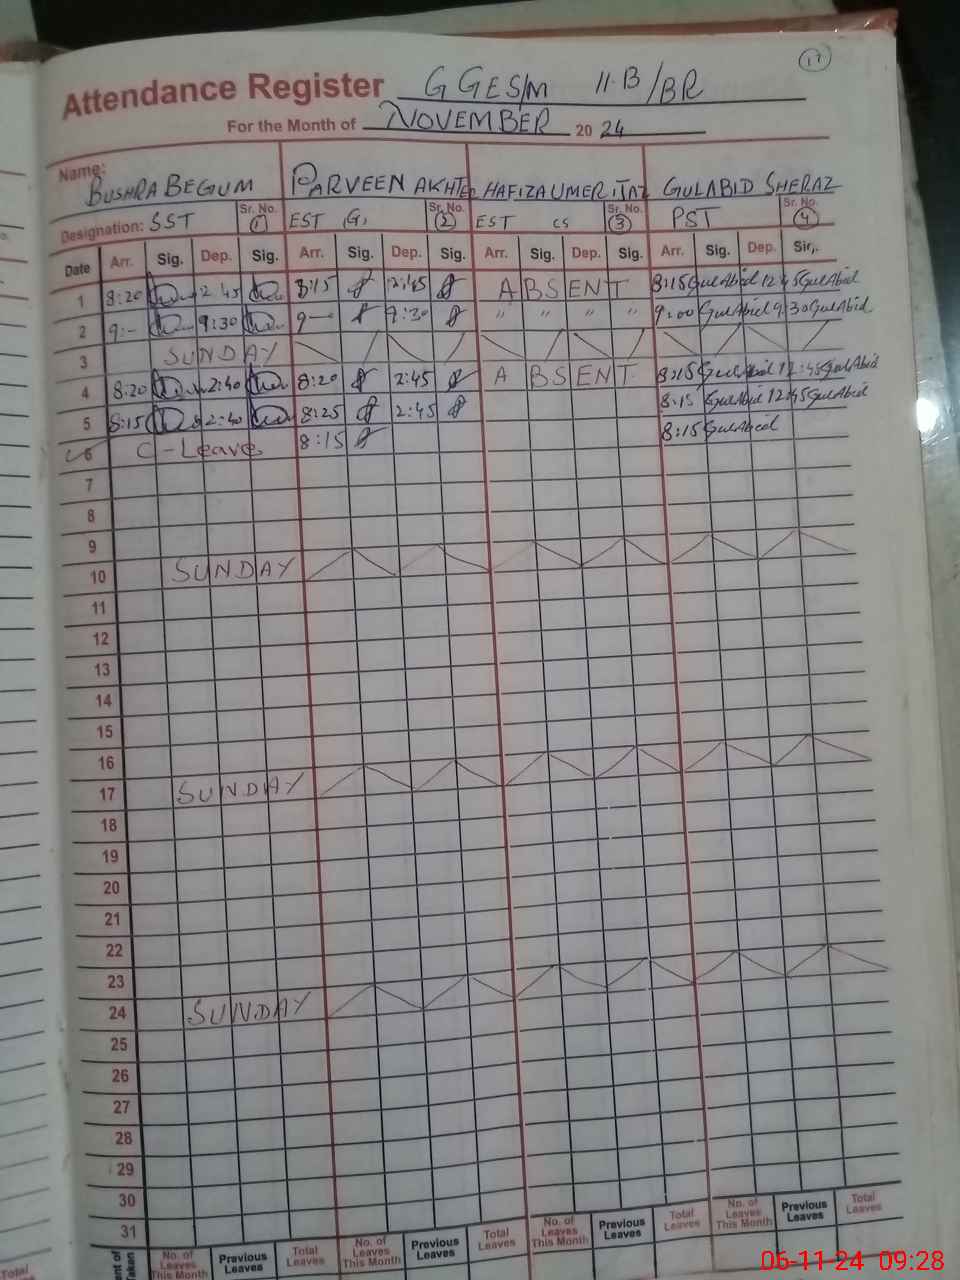 17
Attendance Register GGES/M 11-B/BR
For the Month of NOVEMBER 20 24
Name: BUSHRA BEGUM PARVEEN AKHTER HAFIZA UMER IJAZ GULABID SHERAZ
Designation: SST Sr. No. 1 EST (G) Sr. No. 2 EST CS Sr. No. 3 PST Sr. No. 4
Date Arr. Sig. Dep. Sig. Arr. Sig. Dep. Sig. Arr. Sig. Dep. Sig. Arr. Sig. Dep. Sig.
1 8:20 2:45 8:15 2:45 ABSENT 8:15 GulAbid 12:45 GulAbid
2 9:- 9:30 9- 9:30 " " " " 9:00 GulAbid 9:30 GulAbid
3 SUNDAY
4 8:20 2:40 8:20 2:45 ABSENT 8:15 GulAbid 12:45 GulAbid
5 8:15 2:40 8:25 2:45 8:15 GulAbid 12:45 GulAbid
6 C-Leave 8:15 8:15 GulAbid
7
8
9
10 SUNDAY
11
12
13
14
15
16
17 SUNDAY
18
19
20
21
22
23
24 SUNDAY
25
26
27
28
29
30
31
No. of Leaves This Month Previous Leaves Total Leaves No. of Leaves This Month Previous Leaves Total Leaves No. of Leaves This Month Previous Leaves Total Leaves No. of Leaves This Month Previous Leaves Total Leaves
06-11-24 09:28